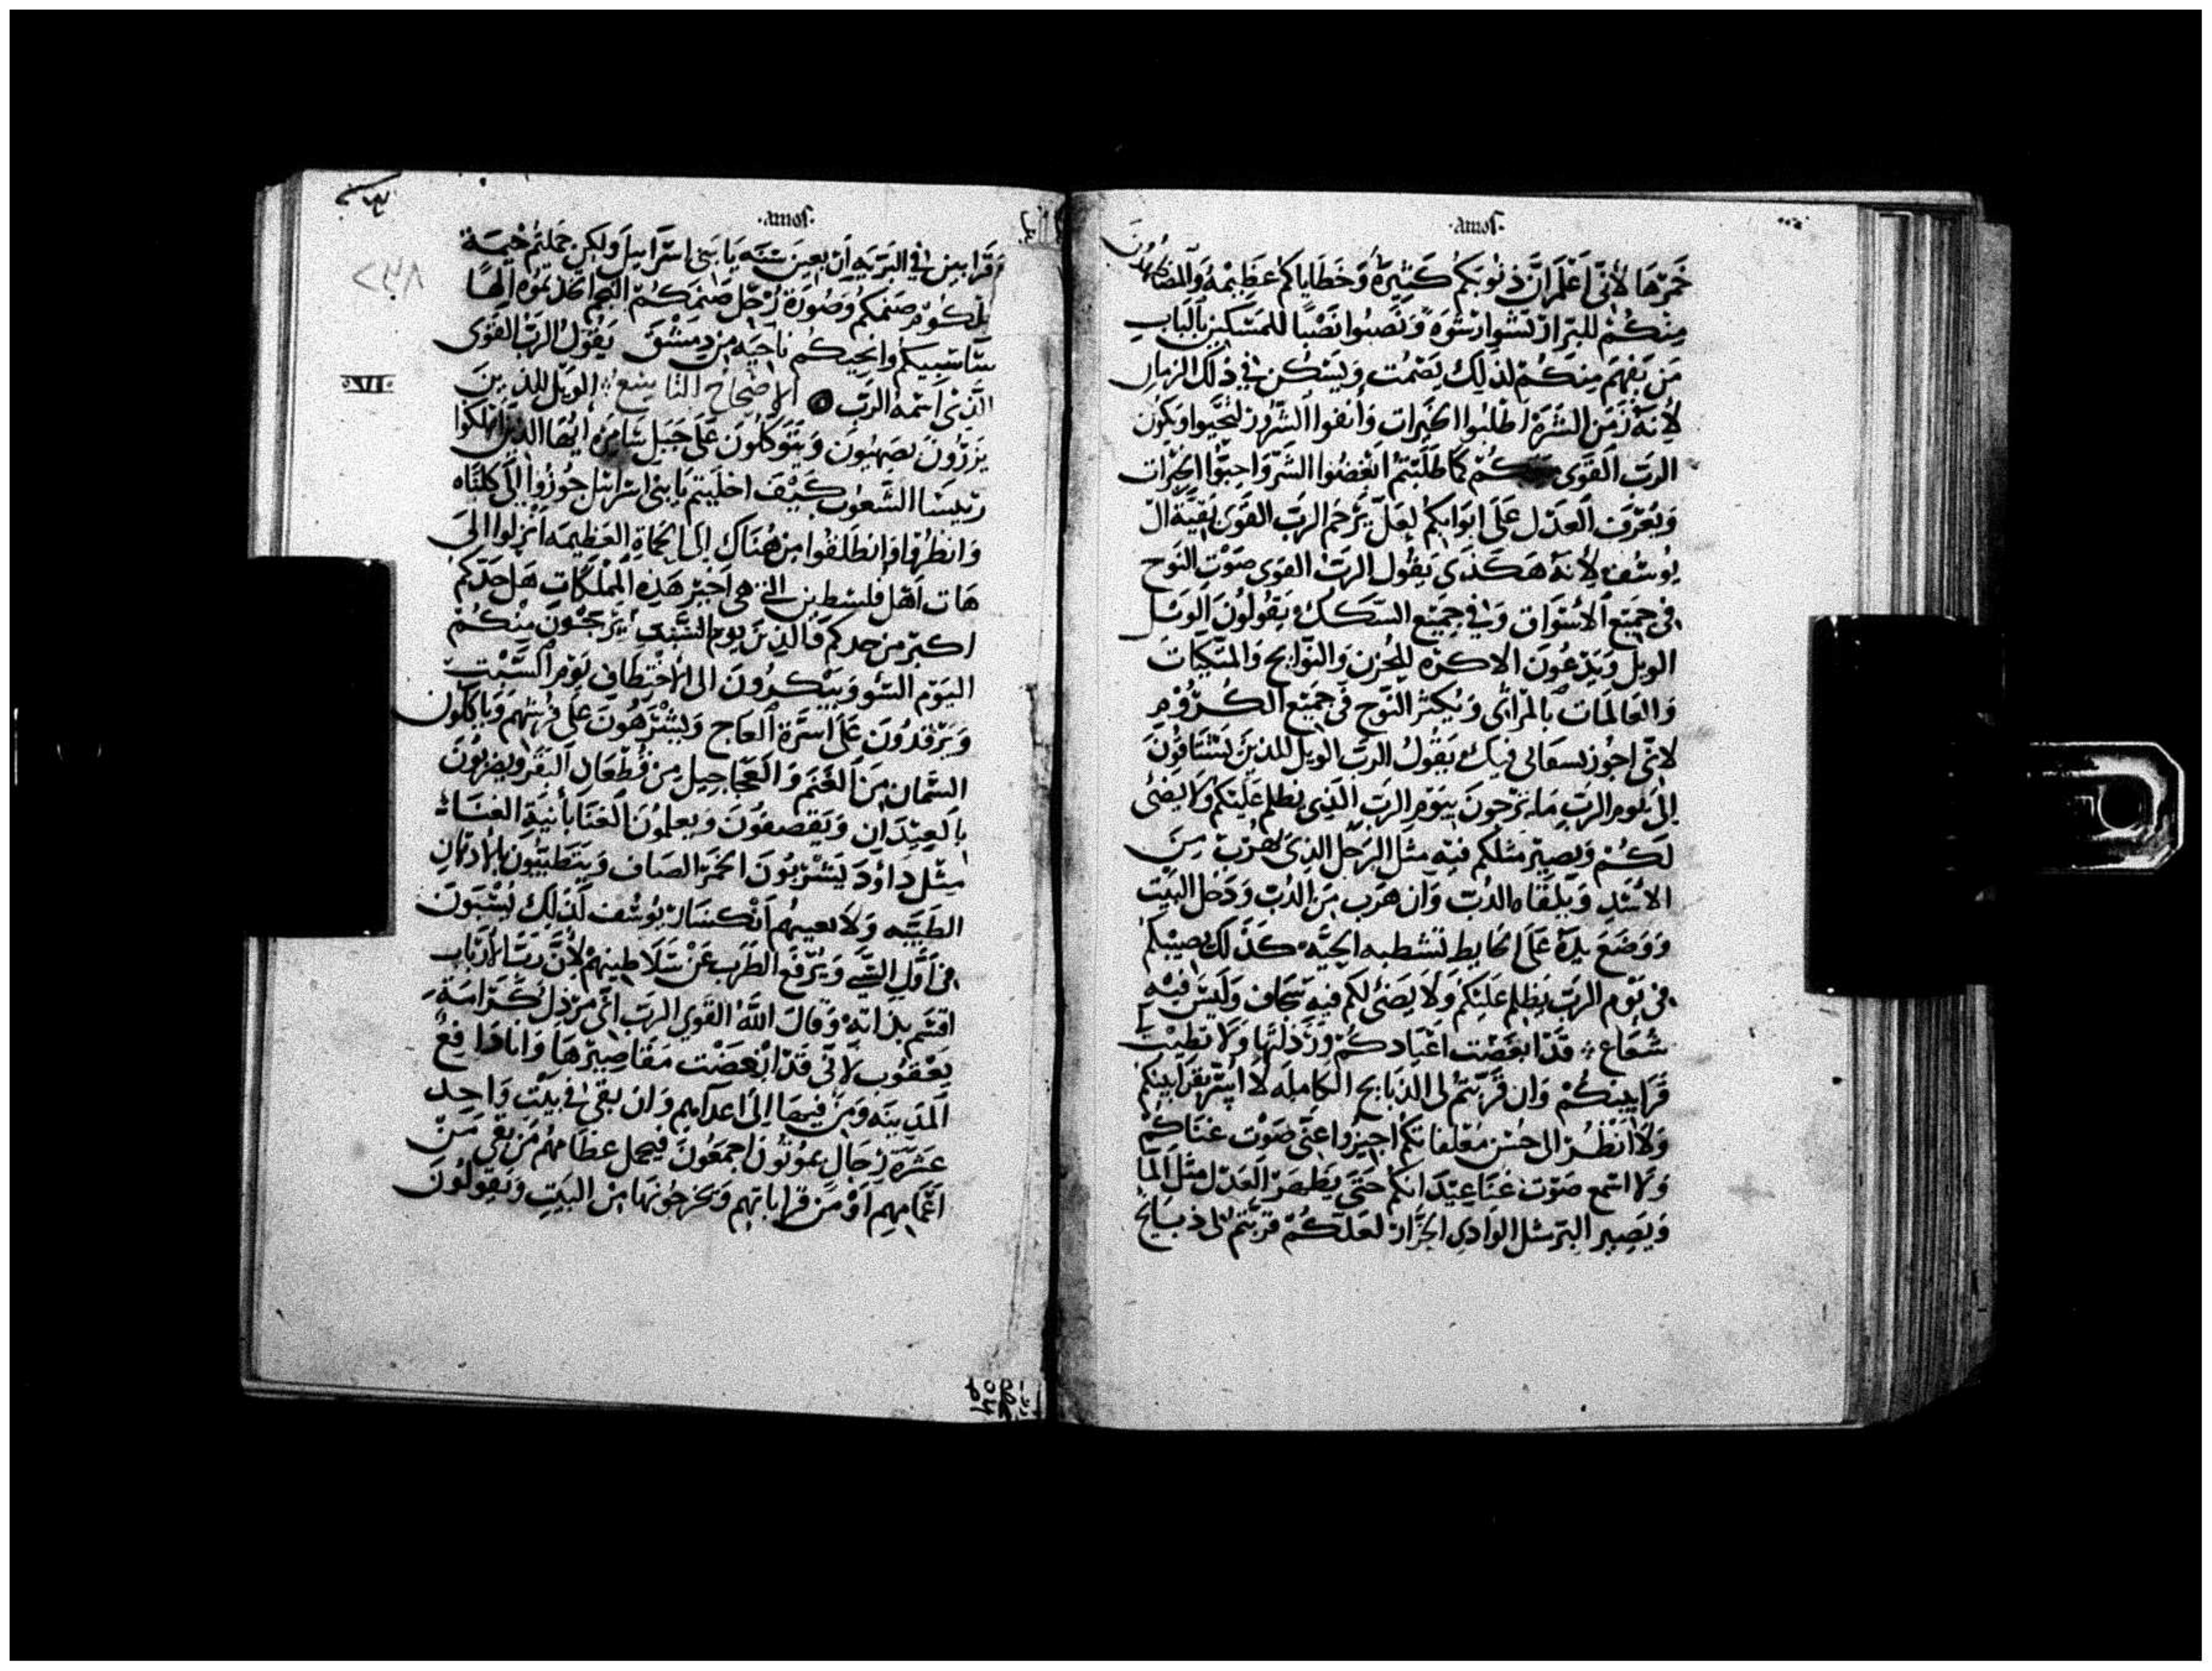 ·amos·
خَمْرَهَا لأَنِّي اَعْلَمُ انَّ ذنُوبَكُم كَثِيرَةٌ وَخَطَايَاكُم عَظِيْمَهُ وَالمضَاهِدُونَ
مِنكُمْ للبرّ ارتشَوا رشوَه وَنَصبُوا نَصْبًا للمسَكين بالبَابِ
مَن يَفهَم مِنكُمْ لذلِكَ يَصْمُت وَيَسْكُن في ذلك الزمَانِ
لأنهُ زَمَن الشرَه اطلبُوا الخَيرات وَانفوا الشرُور لتحيَوا ويَكُون
الربّ القَوِي مَعَكُمْ كما طَلَبْتمُ ابغضُوا الشرّ وَاحبّوا الخيرَات
وَيعرّف العَدل عَلَى ابوَابكم لعَلّ يَرْحَم الربّ القوَى بقيّة ال
يُوسُف لأنهُ هَكَذَى يَقُول الربّ القوى صَوْت النوح
في جَميع الاسْوَاق وَفي جميع السّكَكِ يَقُولُونَ الويل
الويل وَيَدْعُونَ الاكرَه للحزن وَالنوَايح وَالمتكيَات
وَالعَالمَات بالمرَاثي وَيكثر النوح في جَميع الكُرُومِ
لاني اجوز بسعَالى فيكَ يَقُولُ الربّ الويل للذينَ يَشْتَاقونَ
إلى يَوم الربّ مَا ترَجون بيوم الربّ الذِي يظلم عَليْكُم وَلا يضئ
لَكُمْ وَيَصِير مثلكم فيه مثل الرجل الذِي يَهْرُبُ مِنَ
الاسَد وَيَلقَاه الدُب وَان هَرَب مِن الدُبّ وَدَخل البَيْت
وَوَضعَ يدهُ عَلَى الحَايط تَنشطبه الحيَّه كَذلك يصيبكم
في يَوْم الربّ يظلم عَلَيْكُم وَلا يَضئ لَكم فيه سحَاف وَلَيْسَ فيْه
شعَاع ؞ قَد ابغَضت اعيَادكُمْ وَرَذلتهَا وَلا تطيْب لي
قَرَابينكُمْ وَان قَرَّبتمُ لى الذبَايح الكَامِلَه لا اسَرّ بقرَابينكُم
وَلا انظُر الى حُسْن معْلفَاتكُم اجيزُوا عَنّي صَوْت غنَاكُمْ
وَلا اسْمع صَوْت غنَا عِيْدَانكُم حَتَّى يَظهَر العَدْل مثل المَا
وَيَصِير البر مثل الوَادي الجرّار لعَلكُمْ قرّبتمُ لى ذبَايح
·amos·
وَقَرَابين في البَريَه ارْبعينَ سَنَه يَا بَنِى اسْرَاييلَ وَلكِن حملتُم خيْمَة
ملكوم صَنَمكم وَصُورَة زُحَل صَنَمَكُمُ النجم اتخذتمُوه الهًا
سَاسبيكم وانحيكُم ناحيَه مِن دِمَشْقَ يَقُولُ الربّ القَوى
XVII
الَّذِي اسمهُ الربّ ۞ الاصْحَاحُ التَاسِعُ ؞ الويَل للذينَ
يَزرُونَ بصهيُون وَيَتَوَكلُونَ عَلى جَبَل سَامِره ايُهَا الذينَ اهلكوا
رئيسَا الشعُوب كَيْفَ اخلَيتم يَا بَنِى اسْرائيل جُوزُوا الى كلنَاه
وَانظرُهَا وَانطَلقُوا مِن هُنَاك إلى الحمَاة العَظِيمَه انزلوا الىَ
هَات اهْل فلسْطين التي هي اخيَر هَذِه المملكَات هَل حَدّكم
اكبَر من حدكم فالذينَ يوم الشَّرّ يَرْجَوْنَ مِنكُمْ
اليَوم السَوْ وَيَبْكرُونَ الى الاخْتِطَافِ يَوم السَّبْت
وَيَرْقدُونَ عَلَى اسَرّة العَاج وَيَشْرَهُونَ عَلى فُرُشهم وَيَاكلُون
السّمان مِنَ الغنَم وَالعجَاجِيل مِن قُطْعَانِ البَقَر وَيضربُونَ
بالعِيْدَان وَيَقصِفُون وَيعلمونَ الغنَا بأنيَة الغنَاء
مِثل دَاوُدَ يَشرَبُونَ الخَمْر الصَاف وَيَتَطَيّبُون بالادهَان
الطَيّبَه وَلا يعييهُم انكسَار يُوسُف لَذلِكَ يُسْبَوْنَ
في اوّل السَّبى وَيُرفَع الطرَب عَنْ سَلاطِينهمْ لأنَّ رَبّ الارْبَاب
اقسَم بذاتهُ وَقَالَ اللّهُ القَوى الربّ انّي مُرْذِل كَرَامَة
يَعْقوُب لانّي قَدْ ابْغَضْت مَقَاصِيْرهَا وَانَا دَافِعُ
المَدِينَه وَمَن فيهَا إلى اعدَايهم وَان بَقِي في بَيْت وَاحِدٍ
عَشَرَة رِجَالٍ يموتُونَ اجمَعُونَ فيحمل عظَامهُم مَن بَقى مَنْ
اعمَامِهم اوْ مَن قرابَاتهم وَيخرجُونهَا مِن البَيْتِ وَيقولُونَ